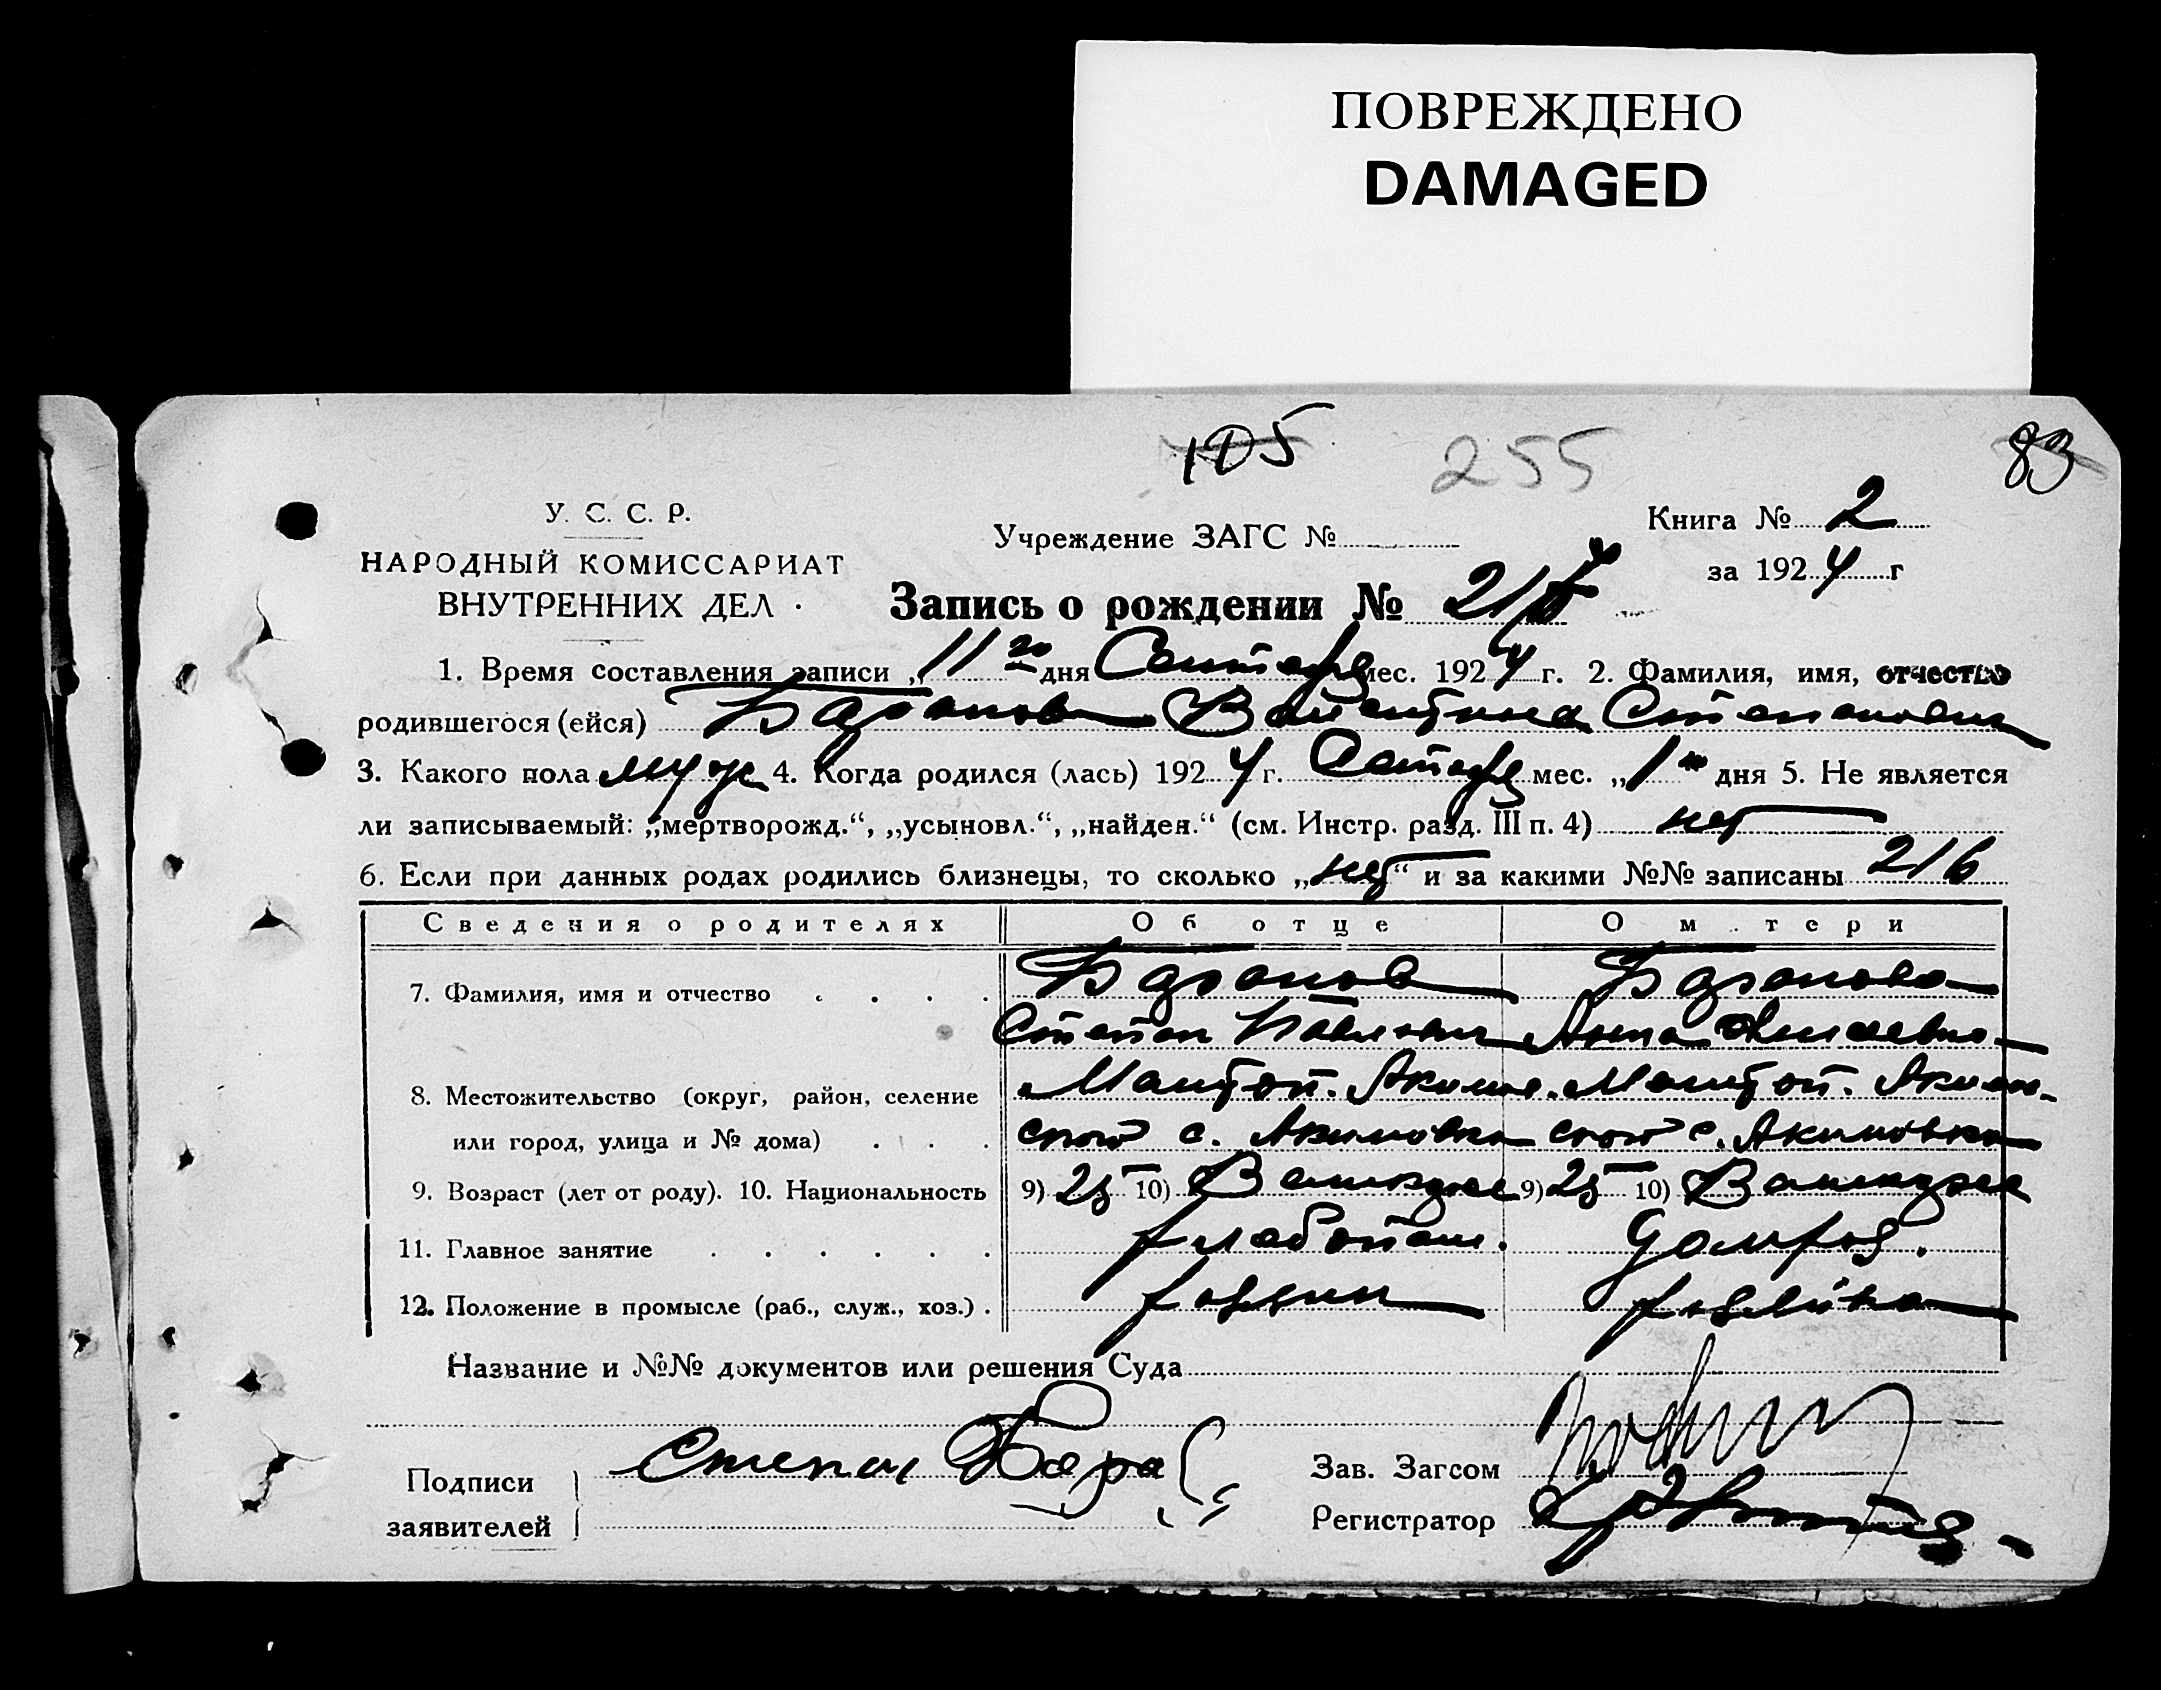 ПОВРЕЖДЕНО
DAMAGED
105 255 83
У. С. С. Р.
НАРОДНЫЙ КОМИССАРИАТ
ВНУТРЕННИХ ДЕЛ
Учреждение ЗАГС №
Книга № 2
за 1924 г
Запись о рождении №
1. Время составления записи „11 го дня мес. 1924 г. 2. Фамилия, имя, отчество
родившегося (ейся) Баранов Степанович
3. Какого пола муж 4. Когда родился (лась) 1924 г. мес. „1 дня 5. Не является
ли записываемый: „мертворожд.“, „усыновл.“, „найден.“ (см. Инстр. разд. III п. 4) нет
6. Если при данных родах родились близнецы, то сколько „нет“ и за какими №№ записаны 216
Сведения о родителях Об отце О м.тери
7. Фамилия, имя и отчество Баранов Баранова
Степан Павлович Анна
8. Местожительство (округ, район, селение Акимов. Акимов-
или город, улица и № дома) ской с. Акимовка ской с. Акимовка
9. Возраст (лет от роду). 10. Национальность 9) 25 10) 9) 25 10)
11. Главное занятие хлебопаш. домхоз.
12. Положение в промысле (раб., служ., хоз.) хозяин хозяйка
Название и №№ документов или решения Суда
Подписи Степан Бара
заявителей
Зав. Загсом
Регистратор